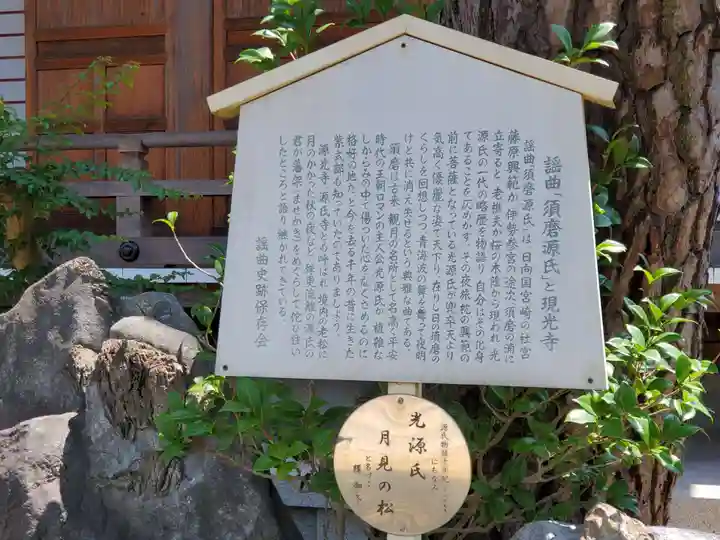 謡曲「須磨源氏」と現光寺
謡曲「須磨源氏」は、日向国宮崎の社官
藤原興範が、伊勢参宮の途次、須磨の浦に
立寄ると、老樵夫が桜の木陰から現われ、光
源氏の一代の略歴を物語り、自分はその化身
であることを仄めかす。その夜旅枕の興範の
前に菩薩となっている光源氏が兜率天より
気高く優雅な姿で天下り、在りし日の須磨の
くらしを回想しつつ、青海波の舞を舞って夜明
けと共に消え失せるという典雅な曲である。
須磨は古来、観月の名所として名高く、平安
時代の王朝ロマンの主人公光源氏が、複雑な
しがらみの中で傷ついた心をなぐさめるのに
格好の地だ、と今を去る千年の昔に生きた
紫式部も知っていたのでありましょう。
源光寺、源氏寺とも呼ばれ、境内の老松に
月のかかった秋の夜など、絆東流離の源氏の
君が藩架(ませがき)をめぐらして侘び住い
したところと語り継がれてきている。
謡曲史跡保存会
源氏物語
光源氏
月見の松